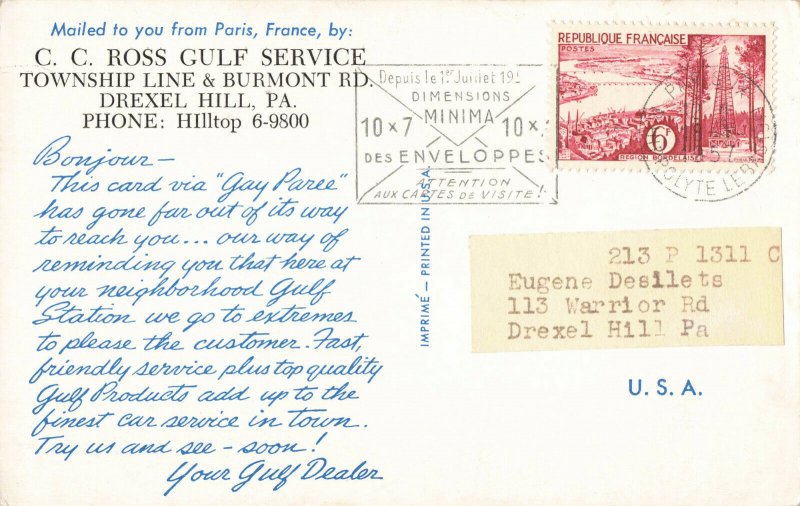 Mailed to you from Paris, France, by:
C. C. ROSS GULF SERVICE
TOWNSHIP LINE & BURMONT RD.
DREXEL HILL, PA.
PHONE: HIlltop 6-9800
Bonjour—
This card via "Gay Paree"
has gone far out of its way
to reach you... our way of
reminding you that here at
your neighborhood Gulf
Station we go to extremes
to please the customer. Fast,
friendly service plus top quality
Gulf Products add up to the
finest car service in town.
Try us and see - soon!
Your Gulf Dealer
Depuis le 1er Juillet 195
DIMENSIONS
MINIMA
10 x 7 10 x
DES ENVELOPPES
ATTENTION
AUX CARTES DE VISITE!
IMPRIMÉ — PRINTED IN U.S.A.
REPUBLIQUE FRANÇAISE
POSTES
6F
REGION BORDELAISE
POLYTE LEB
213 P 1311 C
Eugene Desilets
113 Warrior Rd
Drexel Hill Pa
U. S. A.